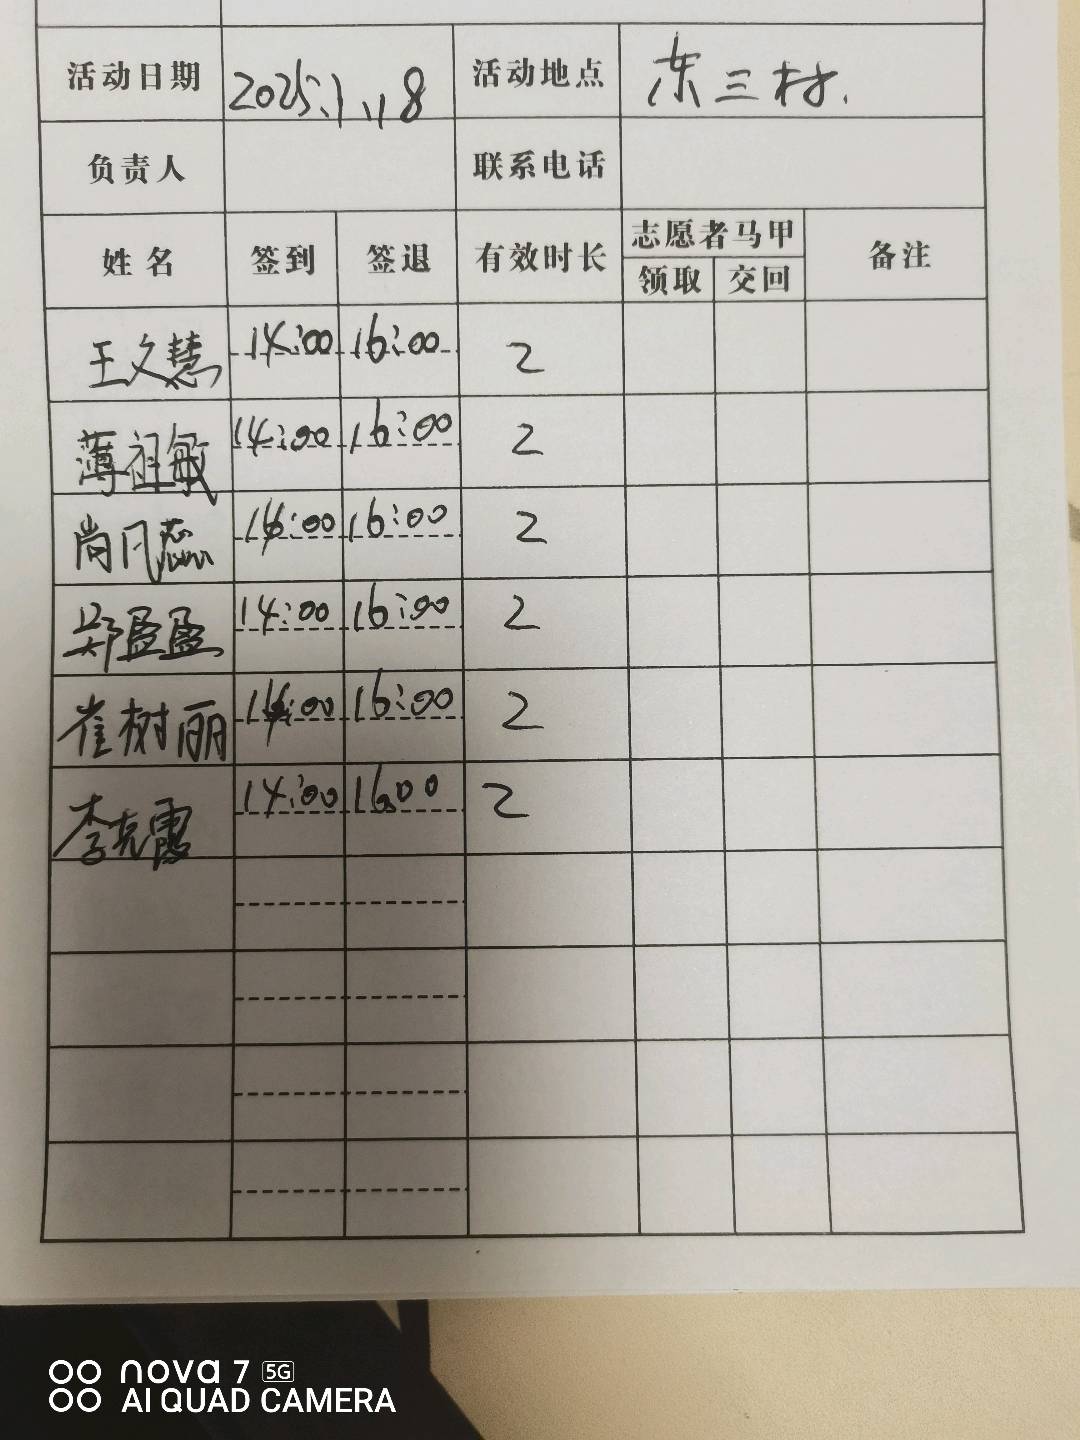 活动日期 2025.1.18 活动地点 东三村.
负责人 联系电话
姓名 签到 签退 有效时长 志愿者马甲 备注
领取 交回
王文慧 14:00 16:00 2
薄祖敏 14:00 16:00 2
尚凡蕊 14:00 16:00 2
郑盈盈 14:00 16:00 2
崔树丽 14:00 16:00 2
李克霞 14:00 16:00 2
nova 7 5G
AI QUAD CAMERA